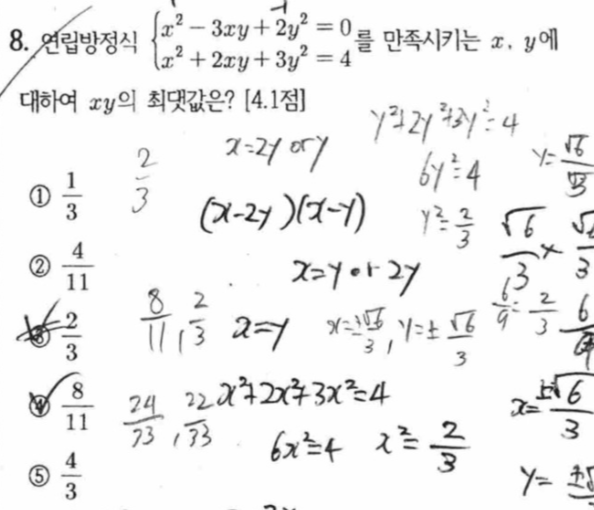 8. 연립방정식 { x² - 3xy + 2y² = 0
x² + 2xy + 3y² = 4 를 만족시키는 x, y에
대하여 xy의 최댓값은? [4.1점]
① 1/3
② 4/11
③ 2/3
④ 8/11
⑤ 4/3
2/3
x=2y or y
(x-2y)(x-y)
x=y or 2y
8/11, 2/3
x=y
24/33, 22/33
x²+2x²+3x²=4
6x²=4 x²=2/3
y²+2y²+3y²=4
6y²=4
y²=2/3
x=±√6/3, y=±√6/3
√6/3 ×
6/9=2/3
x=±√6/3
y=±